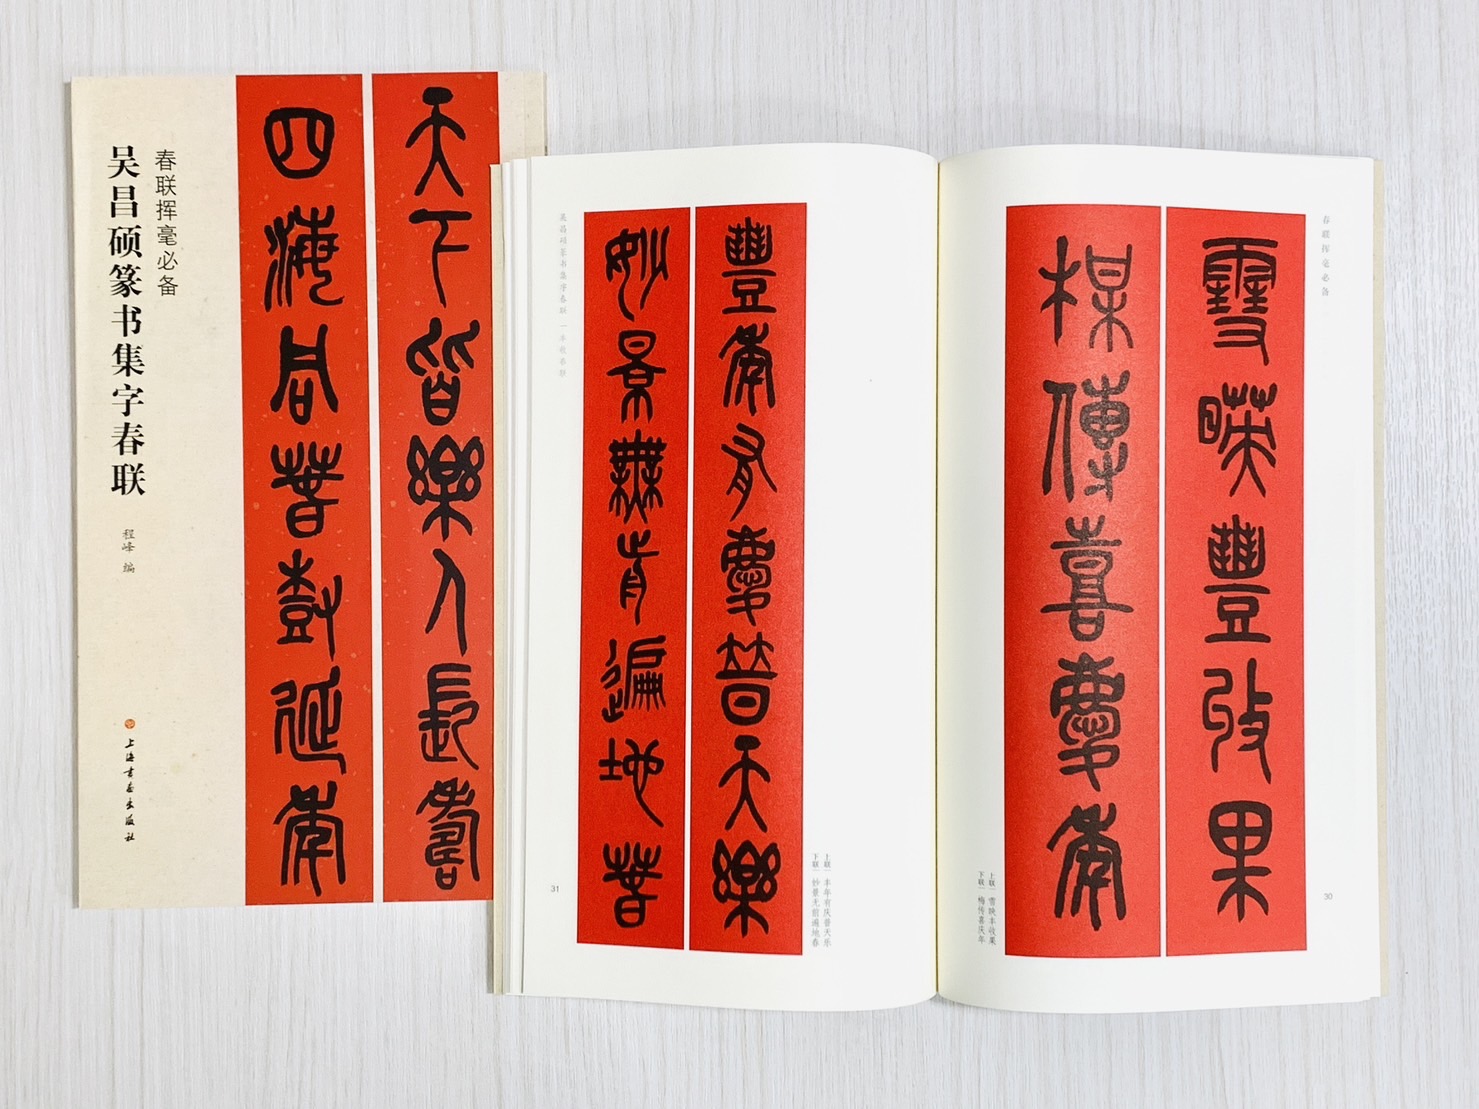 春联挥毫必备
吴昌硕篆书集字春联
程峰 编
上海书画出版社
天下皆樂人長壽
四海同春樹延年
春联挥毫必备
雪暎豐收果
楳傳喜慶年
上联｜雪映丰收果
下联｜梅传喜庆年
30
豐年有慶普天樂
妙景無前遍地春
上联｜丰年有庆普天乐
下联｜妙景无前遍地春
吴昌硕篆书集字春联｜丰收春联
31